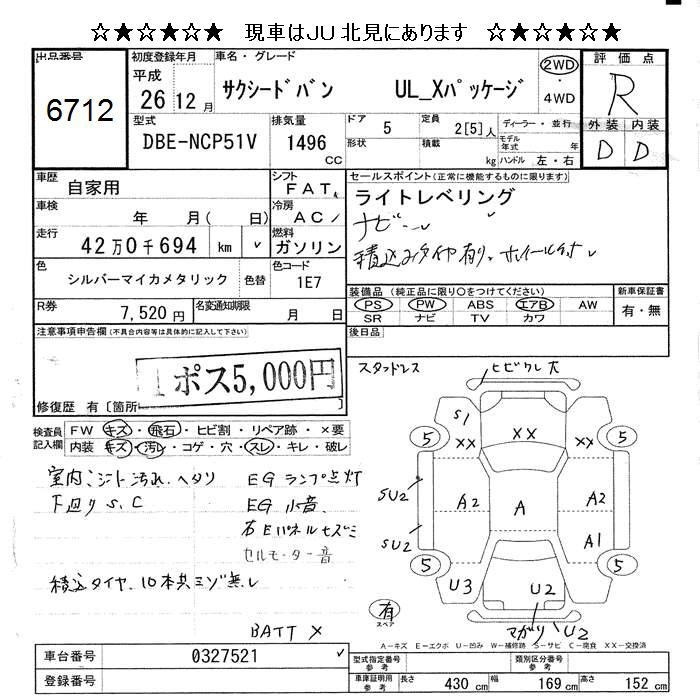 ☆★☆★☆★ 現車はJU北見にあります ☆★☆★☆★
出品番号
6712
初度登録年月
平成
26 12 月
車名・グレード
サクシードバン UL_Xパッケージ
2WD
・
4WD
評価点
R
外装 内装
D D
型式
DBE-NCP51V
排気量
1496
CC
ドア 5
形状
定員 2[5]人
積載 kg
ディーラー・並行
モデル
年式 年
ハンドル 左・右
車歴
自家用
シフト
FAT
車検 年 月( 日)
冷房
AC
走行
42万0千694 km
燃料
ガソリン
色
シルバーマイカメタリック
色替
色コード
1E7
R券
7,520円
名変通知期限
月 日
セールスポイント(正常に機能するものに限ります)
ライトレベリング
ナビー
積込みタイヤ有り、ホイール付
装備品 (純正品に限り○をつけてください)
PS PW ABS エアB AW
SR ナビ TV カワ
新車保証書
有・無
後日品
注意事項申告欄(不具合内容等は具体的に記入して下さい)
ポス5,000円
修復歴 有〔箇所 〕
検査員
記入欄
FW キズ・飛石・ヒビ割・リペア跡・×要
内装 キズ・汚レ・コゲ・穴・スレ・キレ・破レ
室内、シート汚れ、ヘタリ
下回りS、C
積込タイヤ、10本共ミゾ無し
EGランプ点灯
EG小音
右Eパネルセズミ
セルモーター音
BATT ×
スタッドレス
ヒビワレ大
S1
5 XX XX XX 5
SU2
A2 A A2
SU2
A1
5 5
U3 U2
マガリ U2
有
スペア
A-キズ E-エクボ U-凹み W-補修跡 S-サビ C-腐食 XX-交換済
車台番号
0327521
登録番号
型式指定番号
参考
類別区分番号
参考
車庫証明用
参考
長さ 430 cm
幅 169 cm
高さ 152 cm